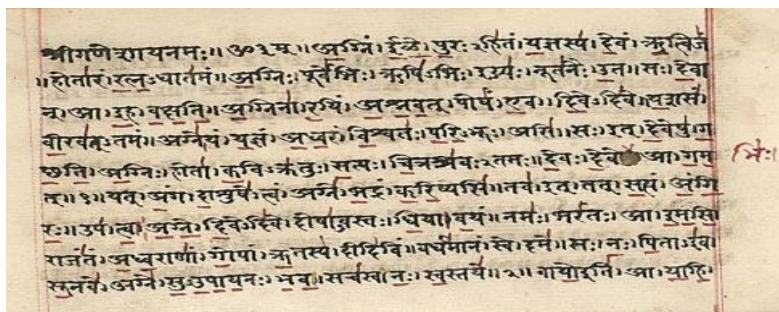 श्रीगणेशायनमः॥ॐ३म्॥अग्निं।ईळे।पुरःऽहितं।यज्ञस्य।देवं।ऋत्विजं
॥होतारं।रत्नऽधातमं॥अग्निः।पूर्वेभिः।ऋषिऽभिः।ईड्यः।नूतनैः।उत॥सः।देवा
न्।आ।इह।वक्षति॥अग्निना।रयिं।अश्नवत्।पोषं।एव।दिवेऽदिवे॥यशसं
वीरवत्ऽतमं॥अग्ने।यं।यज्ञं।अध्वरं।विश्वतः।परिऽभूः।असि॥सः।इत्।देवेषु।ग
च्छति॥अग्निः।होता।कविऽक्रतुः।सत्यः।चित्रश्रवःऽतमः॥देवः।देवे आ।गम
भिः।
त्॥१॥यत्।अंग।दाशुषे।त्वं।अग्ने।भद्रं।करिष्यसि॥तव।इत्।तत्।सत्यं।अंगि
रः॥उप।त्वा।अग्ने।दिवेऽदिवे।दोषाऽवस्तः।धिया।वयं॥नमः।भरंतः।आ।इमसि
राजंतं।अध्वराणां।गोपां।ऋतस्य।दीदिविं॥वर्धमानं।स्वे।दमे॥सः।नः।पिताऽइव
सूनवे।अग्ने।सुऽउपायनः।भव॥सचस्व।नः।स्वस्तये॥२॥वायोइति।आ।याहि।